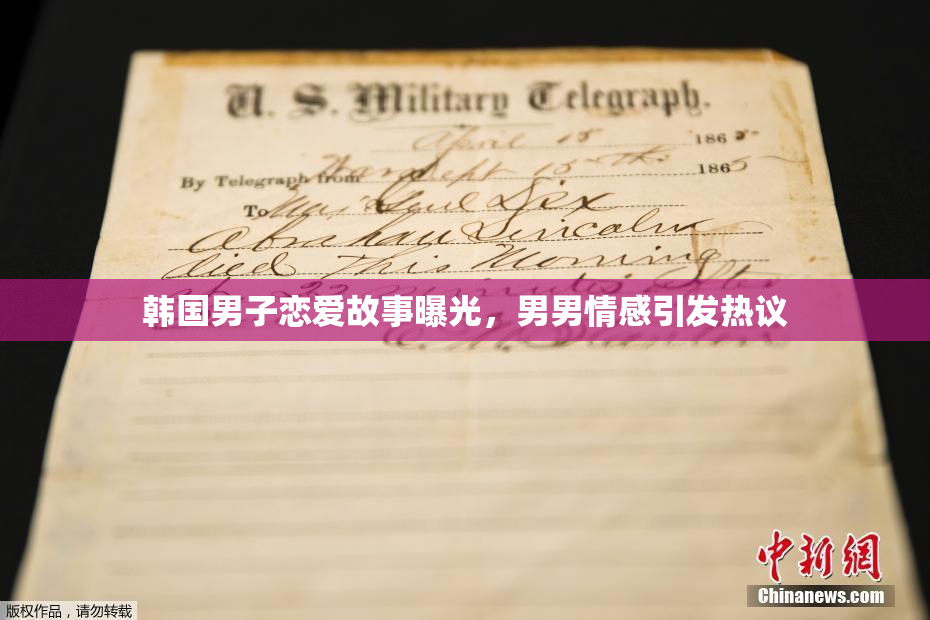 U. S. Military Telegraph.
April 15 1865
By Telegraph from War Dept 15th 1865
To Maj Genl Dix
Abraham Lincoln
died This Morning
at 22 minutes after
韩国男子恋爱故事曝光，男男情感引发热议
E. M. Stanton
中新网
Chinanews.com
版权作品，请勿转载